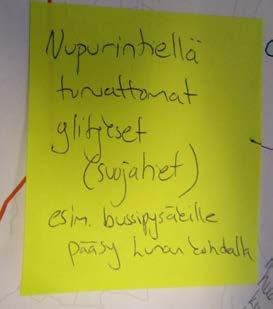 Nupurintiellä
turvattomat
ylitykset
(suojatiet)
esim. bussipysäkille
pääsy kohdalla